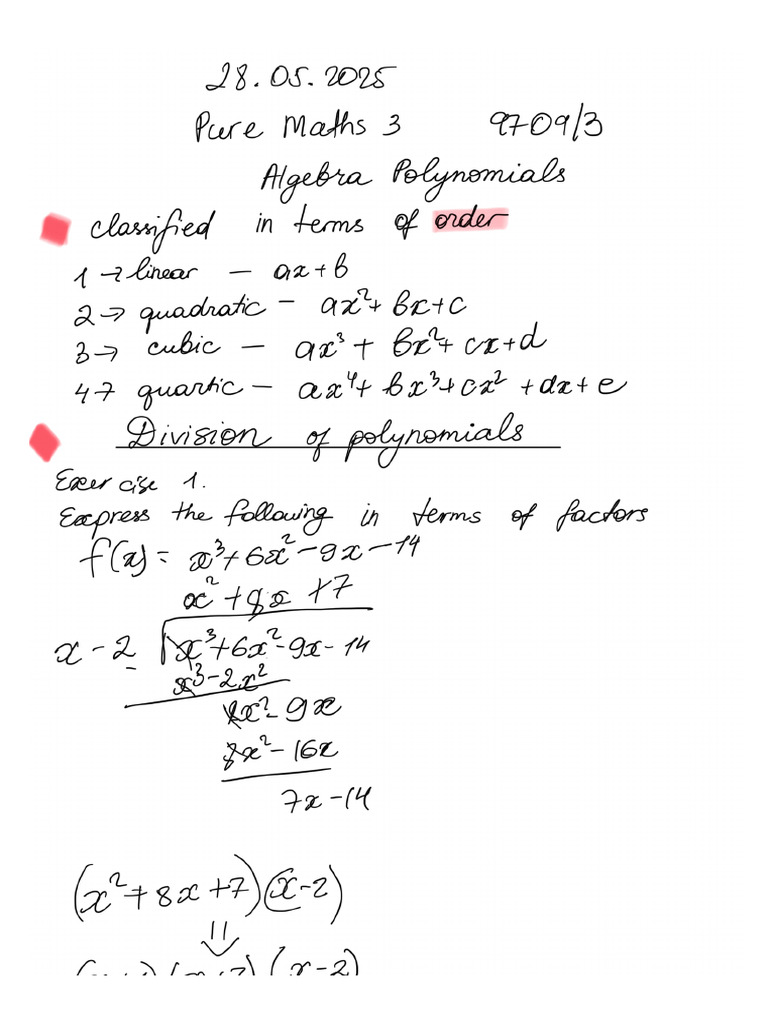 28.05.2025
Pure Maths 3 9709/3
Algebra Polynomials
classified in terms of order
1 → linear — ax+b
2 → quadratic — ax²+bx+c
3 → cubic — ax³+bx²+cx+d
4 → quartic — ax⁴+bx³+cx²+dx+e
Division of polynomials
Exercise 1.
Express the following in terms of factors
f(x) = x³+6x²-9x-14
x²+8x+7
x-2 x³+6x²-9x-14
x³-2x²
8x²-9x
8x²-16x
7x-14
(x²+8x+7)(x-2)
(x-2)